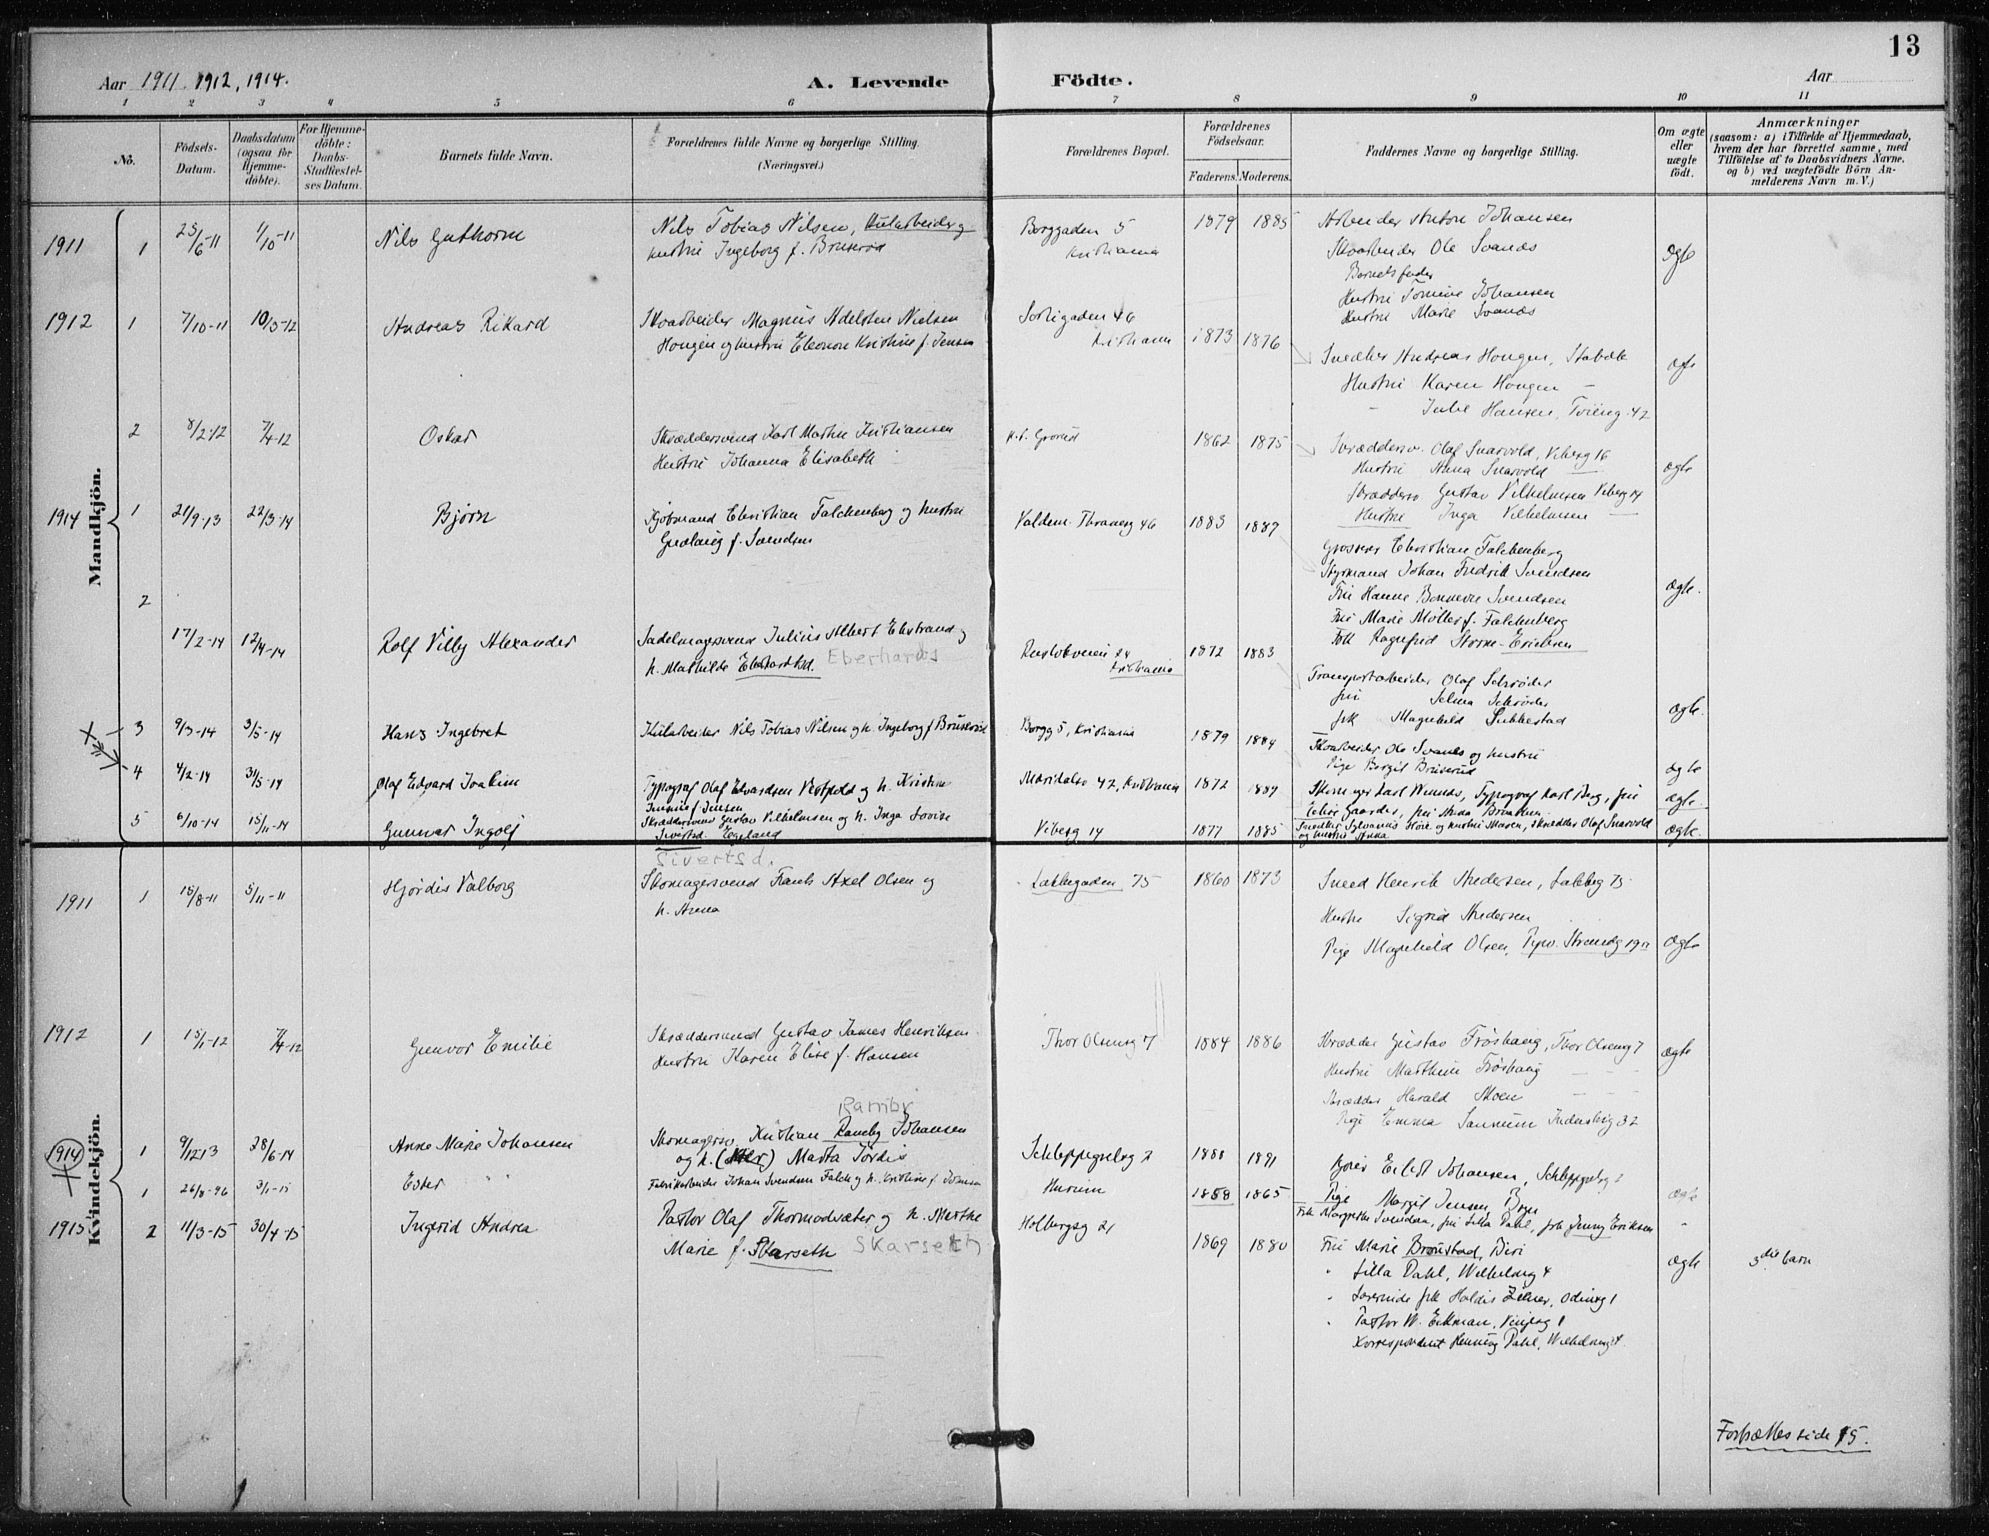 13
Aar 1911. 1912, 1914.
A. Levende Födte.
Aar
1 2 3 4 5 6 7 8 9 10 11
No.
Födsels-Datum.
Daabsdatum (ogsaa for Hjemme-döbte).
For Hjemme-döbte: Daabs-Stadfæstel-ses Datum.
Barnets fulde Navn.
Forældrenes fulde Navne og borgerlige Stilling. (Næringsvei.)
Forældrenes Bopæl.
Forældrenes Födselsaar.
Faderens. Moderens.
Faddernes Navne og borgerlige Stilling.
Om ægte eller uægte födt.
Anmærkninger
(saasom: a) i Tilfælde af Hjemmedaab, hvem der har forrettet samme, med Tilföielse af to Daabsvidners Navne. og b) ved uægtefödte Börn An-melderens Navn m. V.)
Mandkjön.
1911 1 25/6-11 1/10-11 Nils Guthorm
Nils Tobias Nilsen,
hustru Ingeborg f. Bruserød
Borggaden 5
Kristiania
1879 1885
Arbeider Anton Johansen
Skoarbeider Ole Svanæs
Barnets fader
Hustru Tomine Johansen
Hustru Marie Svanæs
ægte
1912 1 7/10-11 10/3-12 Andreas Rikard
Skoarbeider Magnus Adelsten Nielsen
Hougen og hustru Eleonore Kristine f. Jensen
Sorligaden 46
Kristiania
1873 1876
Snedker Andreas Hougen, Stabæk
Hustru Karen Hougen -
- Julie Hansen, 42
ægte
2 8/2-12 7/4-12 Oskar
Skræddersvend Karl Martin Kristiansen
Hustru Johanna Elisabeth
Grorud
1862 1875
Skræddersv. Olaf Snarvold, Viberg 16
Hustru Anna Snarvold
Skræddersv Gustav Vilhelmsen Viberg 14
Hustru Inga Vilhelmsen
ægte
1914 1 21/9-13 22/3-14 Bjørn
Kjøbmand Christian Falchenberg og hustru
Gudlaug f. Svendsen
Valdem. Thranesg 46
1883 1887
Grosserer Christian Falchenberg
Styrmand Johan Fredrik Svendsen
Fru Hanne Svendsen
Fru Marie Möller f. Falchenberg
Frk Ragnfrid Storm-Erichsen
ægte.
2 17/2-14 12/4-14 Rolf Villy Alexander
Sadelmagersvend Julius Albert Ekstrand og
h. Mathilde Eberhardsd. Eberhards
24
Kristiania
1872 1883
Transportarbeider Olaf Schrøder
fru Selma Schrøder
frk Magnhild Sukkestad
ægte.
3 9/3-14 3/5-14 Hans Ingebret
Nils Tobias Nilsen og h. Ingeborg f. Bruserød
Borgg 5, Kristiania
1879 1884
Skoarbeider Ole Svanes og hustru
Pige Borgil Bruserud
ægte
4 4/2-14 31/5-14 Olaf Edvard Joakim
Typograf Olaf Edvardsen Vestpold og h. Kristine
f. Jensen
Maridalsv 42, Kristiania
1872 1889
Karl Winnæs, Typograf Karl Berg, fru
Gaarder, fru Anna
ægte.
5 6/10-14 15/11-14 Gunnar Ingolf
Skræddersvend Gustav Vilhelmsen og h. Inga Lovise
Sivertsd. Egeland
Sivertsd.
Viberg 14
1877 1885
Snedker Sylvanus og hustru Maren, skrædder Olaf Snarvold
og hustru Anna
ægte.
Kvindekjön.
1911 1 15/8-11 5/11-11 Hjørdis Valborg
Skomagersvend Frants Axel Olsen og
h. Anna
Lakkegaden 75
1860 1873
Sned Henrik Andersen, Lakkeg 75
Hustru Sigrid Andersen
Pige Magnhild Olsen,
ægte
1912 1 15/1-12 7/4-12 Gunvor Emilie
Skræddersvend Gustav James Henriksen
Hustru Karen Elise f. Hansen
Thor Olsensg 7
1884 1886
Skrædder Gustav Frøshaug, Thor Olsensg 7
Hustru Marthine Frøshaug
Skrædder Harald Skoen
Pige Emma Sannum 32
ægte
Rambr
1914 1 9/12 13 28/6-14 Anne Marie Johansen
Skomagersv Kristian Ramby Johansen
og h. Marta Tordis
Schleppegrelsg 2
1888 1891
Eilert Johansen, Schleppegrelsg 2
Pige Margit Jensen
ægte
1 26/8-96 3/1-15 Ester " "
Fabrikarbeider Johan Svendsen Falck og h. Kristine f. Johnsen
Hurum
1858 1865
Frk Margrethe Svendsen, fru Lilla Dahl, frk Jenny Eriksen
"
1915 2 11/3-15 30/4-15 Ingerid Andrea
Pastor Olaf Thormodsæter og h. Marthe
Marie f. Skarseth Skarseth
Holbergsg 21
1869 1880
Fru Marie Brønstad, Biri
" Lilla Dahl, Wilhelmsg 4
" Lærerinde frk Haldis Zilner, Odinsg 1
" Pastor W. Eckman, 1
Korrespondent Henning Dahl, Wilhelmsg 4
ægte
3die barn
Fortsættes side 15.